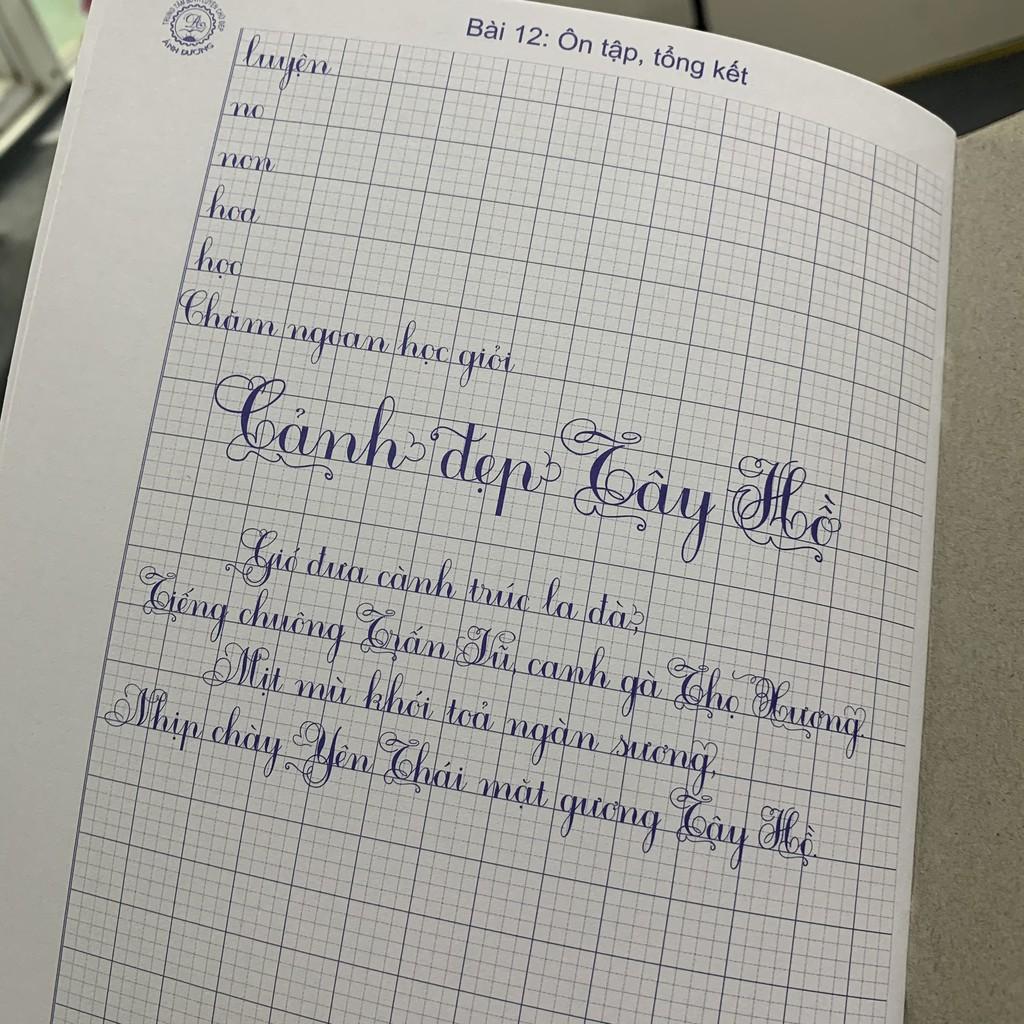 TRUNG TÂM RÈN LUYỆN CHỮ ĐẸP
ÁNH DƯƠNG
Bài 12: Ôn tập, tổng kết
luyện
no
non
hoa
học
Chăm ngoan học giỏi
Cảnh đẹp Tây Hồ
Gió đưa cành trúc la đà,
Tiếng chuông Trấn Vũ, canh gà Thọ Xương.
Mịt mù khói toả ngàn sương,
Nhịp chày Yên Thái mặt gương Tây Hồ.